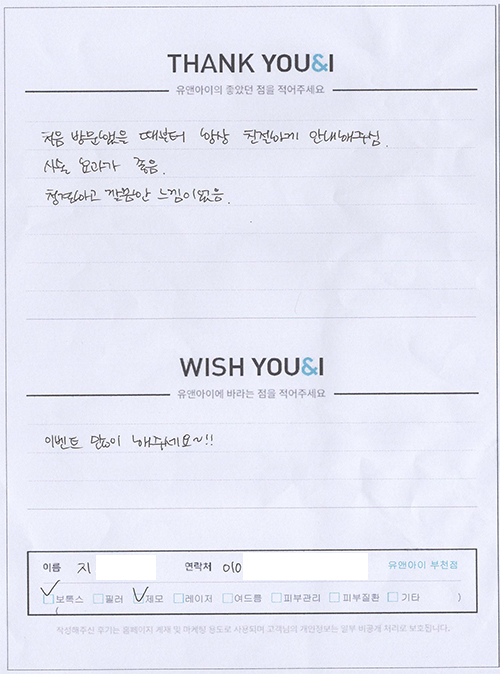 THANK YOU&I
유앤아이의 좋았던 점을 적어주세요
처음 방문했을 때부터 항상 친절하게 안내해주심.
시술 효과가 좋음.
청결하고 깔끔한 느낌이었음.
WISH YOU&I
유앤아이에 바라는 점을 적어주세요
이벤트 많이 해주세요~!!
이름 지 연락처 010 유앤아이 부천점
보톡스 필러 제모 레이저 여드름 피부관리 피부질환 기타 )
(
작성해주신 후기는 홈페이지 게재 및 마케팅 용도로 사용되며 고객님의 개인정보는 일부 비공개 처리로 보호됩니다.